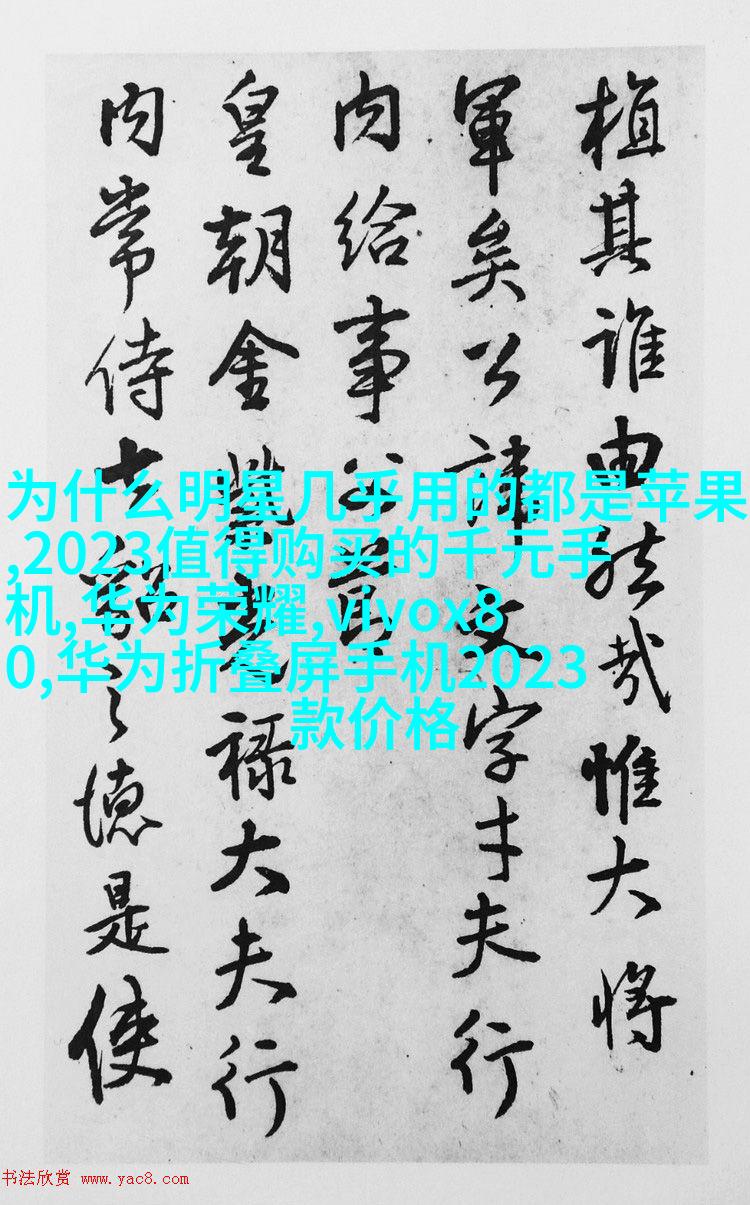 植其誰由然哉惟大將
軍矣公諱文字才夫行
内給事
皇朝金光禄大夫行
内常侍之德是使
为什么明星几乎用的都是苹果
,2023值得购买的千元手
机,华为荣耀,vivox8
0,华为折叠屏手机2023
款价格
书法欣赏 www.yac8.com